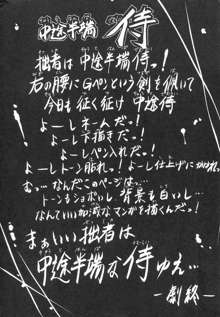 中途半端 侍
拙者は中途半端侍っ!
右の腰にGペンという剣を佩いて
今日も征く征け 中途侍
よーしネームだっ!
よーし下描きだっ!
よーしペン入れだっ!
よートーン貼れ。! よーし仕上げに
むっ…なんだこのページは…
トーンもショボいし 背景も白いし…
なんていい加減なマンガを描くんだっ!
まぁいい拙者は
中途半端な侍ゆえ…
―劇終―